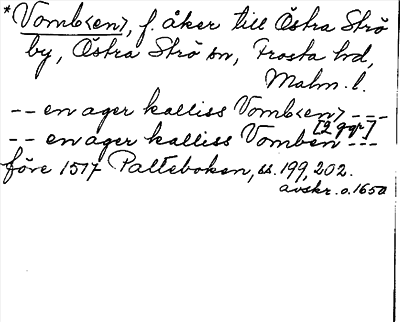 *Vomb<en>, f. åker till Östra Strö
by, Östra Strö sn, Frosta hd,
Malm. l.
-- en ager kalliss Vomb<en> ---
[2 ggr]
-- en ager kalliss Vomben ---
före 1517 Palteboken, ss. 199, 202.
avskr. o. 1650